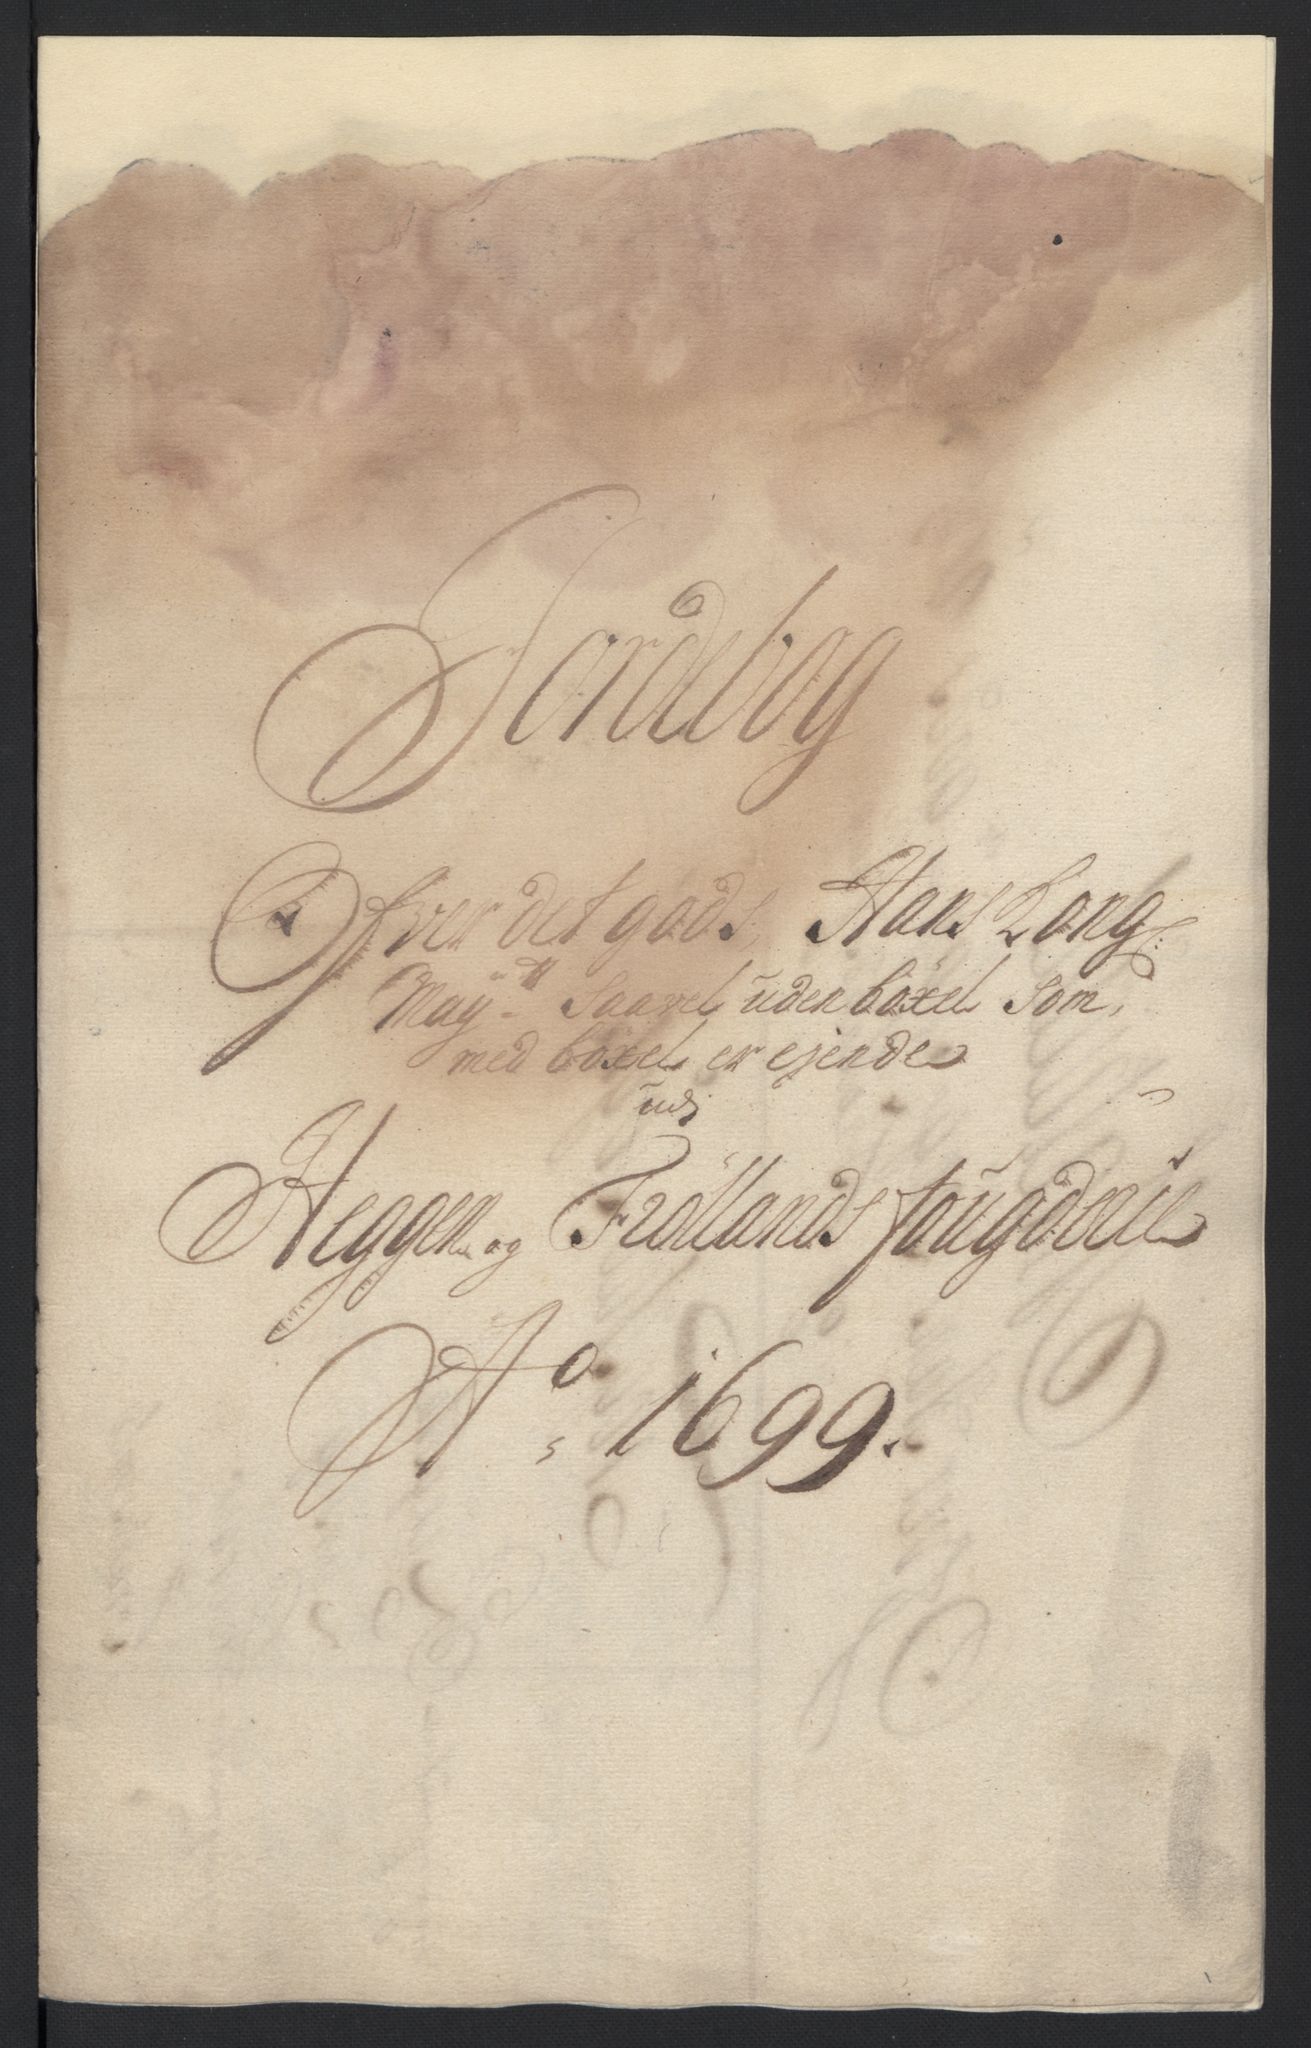 Jordebog
Ofver det gods, Hans Kong:
May:tt saavel uden böxel som,
med böxel er ejende
udj
Heggen og Fröllands fougderie
Ao 1699.